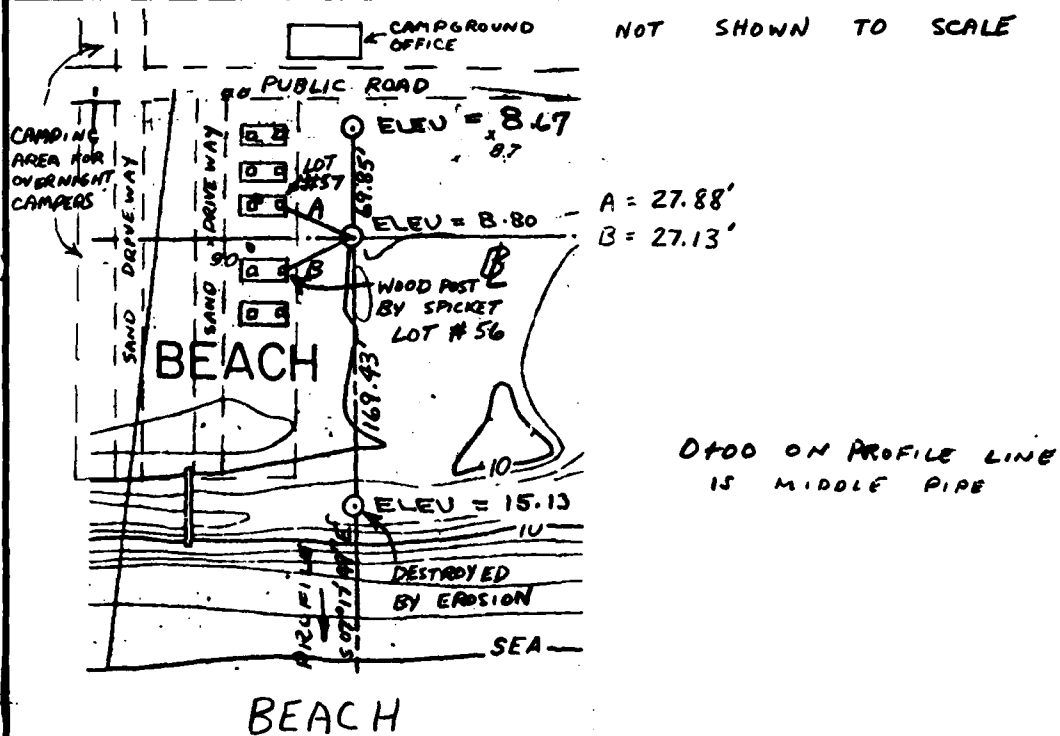 CAMPGROUND
OFFICE
NOT SHOWN TO SCALE
PUBLIC ROAD
CAMPING
AREA FOR
OVERNIGHT
CAMPERS
SAND DRIVEWAY
SAND DRIVEWAY
LOT
#57
ELEV = 8.67
8.7
69.85'
A
ELEV = 8.80
A = 27.88'
B = 27.13'
9.0
B
WOOD POST
BY SPICKET
LOT # 56
BEACH
169.43'
10
0+00 ON PROFILE LINE
IS MIDDLE PIPE
ELEV = 15.13
10
DESTROYED
BY EROSION
PROFILE
SEA
BEACH